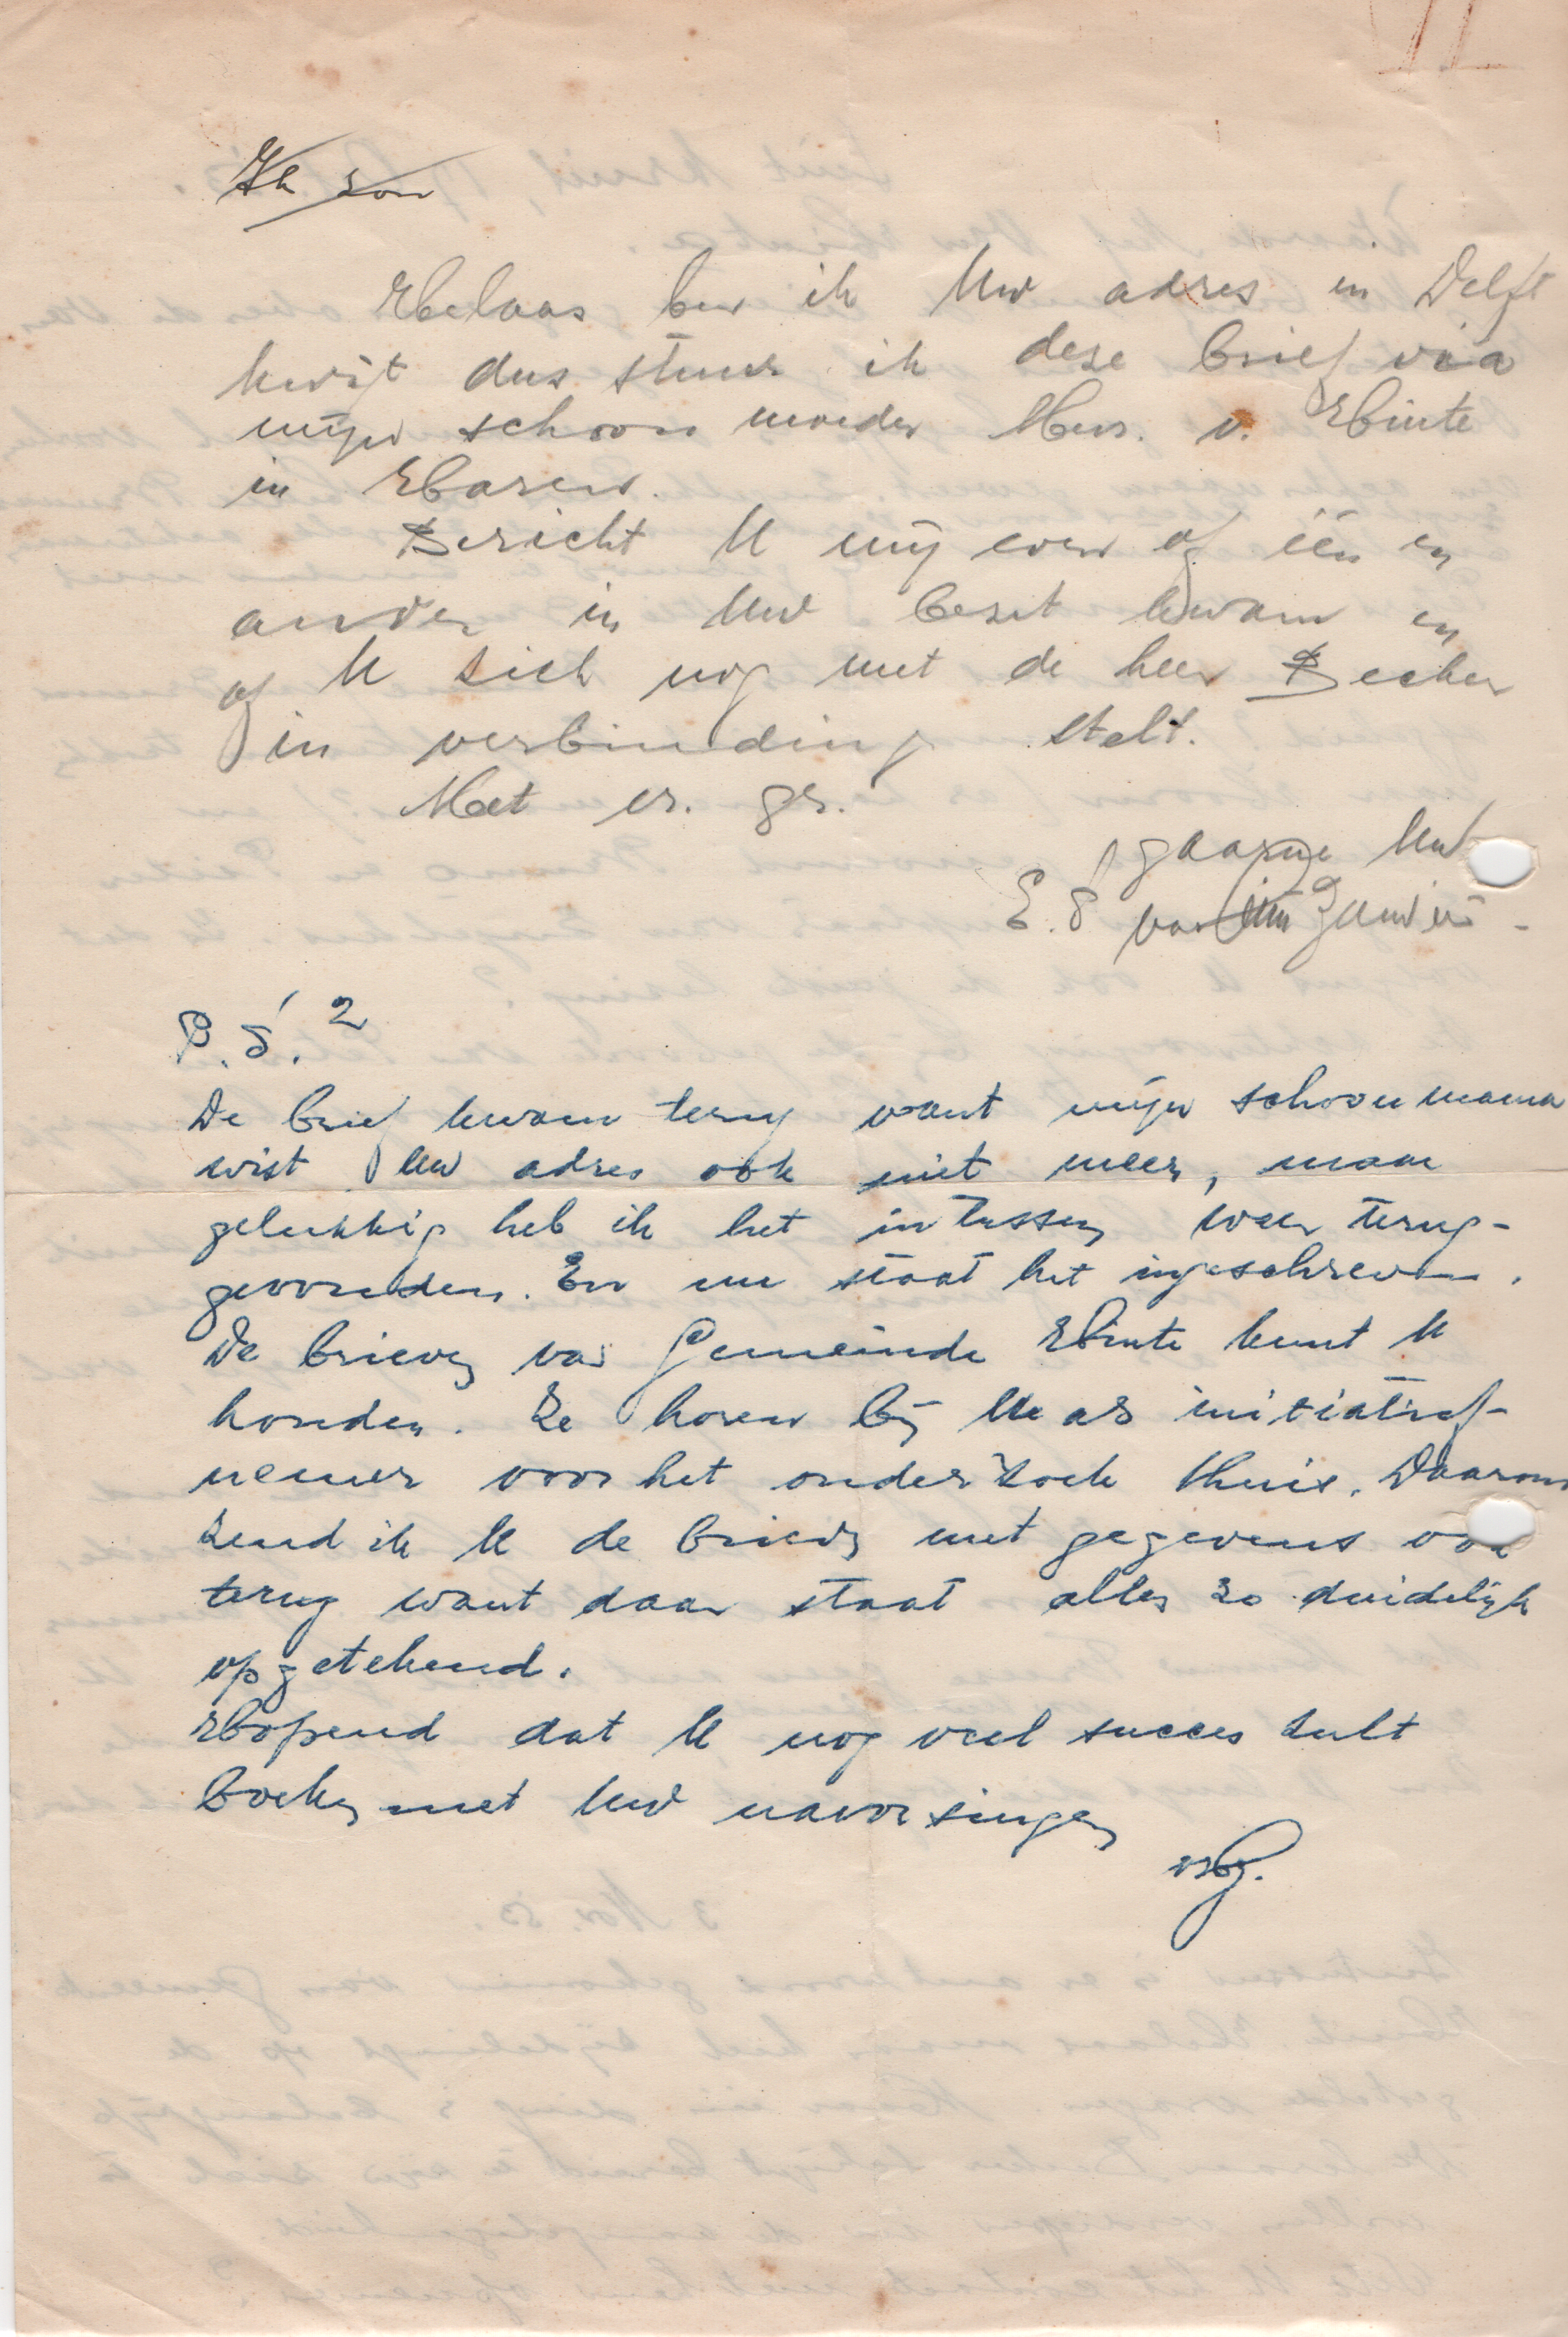 Ik zou
Helaas ben ik Uw adres in Delft
kwijt dus stuur ik deze brief via
mijn schoon moeder Mevr. v. Hinte
in Haren.
Bericht U mij even of één en
ander in Uw bezit kwam en
of U zich nog met de heer Becker
in verbinding stelt.
Met vr. gr.
gaarne Uw
E. S. van
P.S. 2
De brief kwam terug want mijn schoonmama
wist Uw adres ook niet meer, maar
gelukkig heb ik het intussen weer terug-
gevonden. En nu staat het ingeschreven.
De brieven van Gemeinde Hinte kunt U
houden. Ze horen bij U als initiatief-
nemer voor het onderzoek thuis. Daarom
zend ik U de brieven met gegevens ook
terug want daar staat alles zo duidelijk
opgetekend.
Hopend dat U nog veel succes zult
boeken met Uw navorsingen